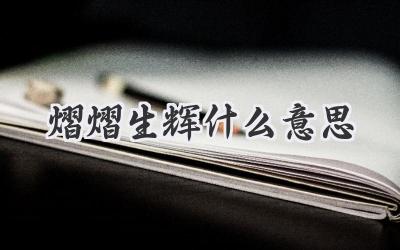 熠熠生辉什么意思